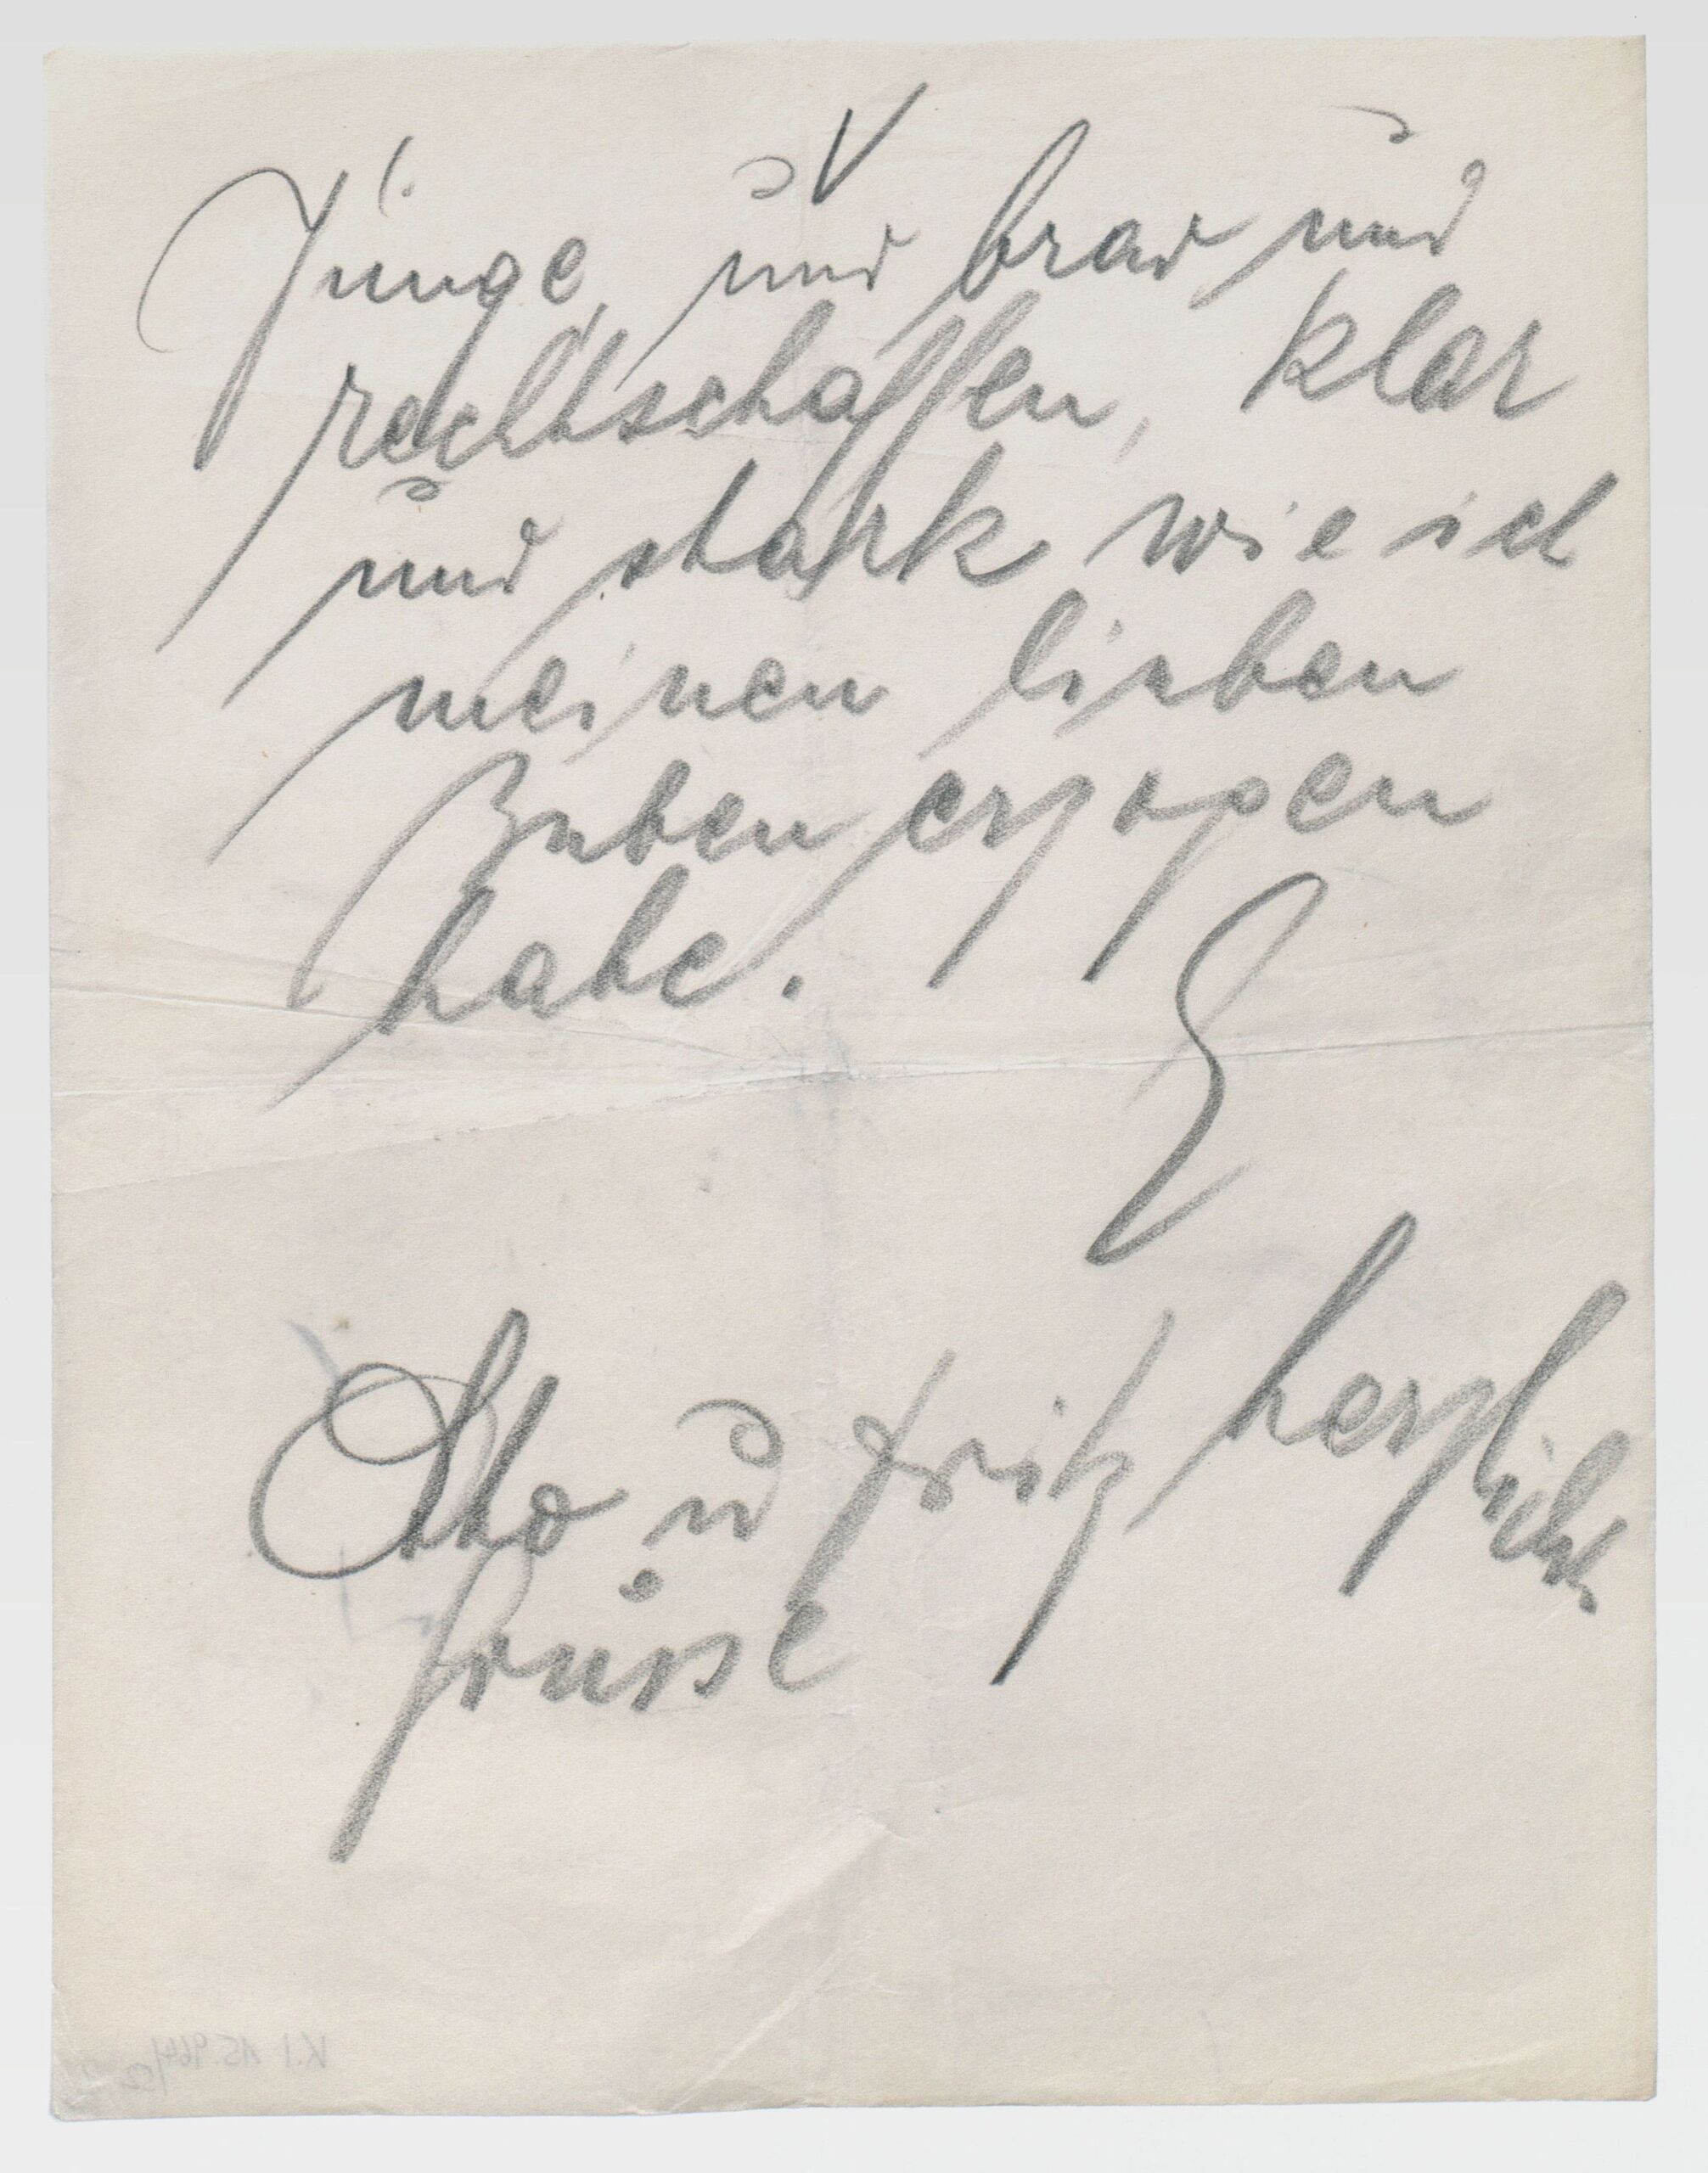 V
Junge, und brav und
rechtschaffen, klar
und stark wie ich
meinen lieben
Buben erzogen
habe.
Otto ud Fritz herzlichst
Grüsse